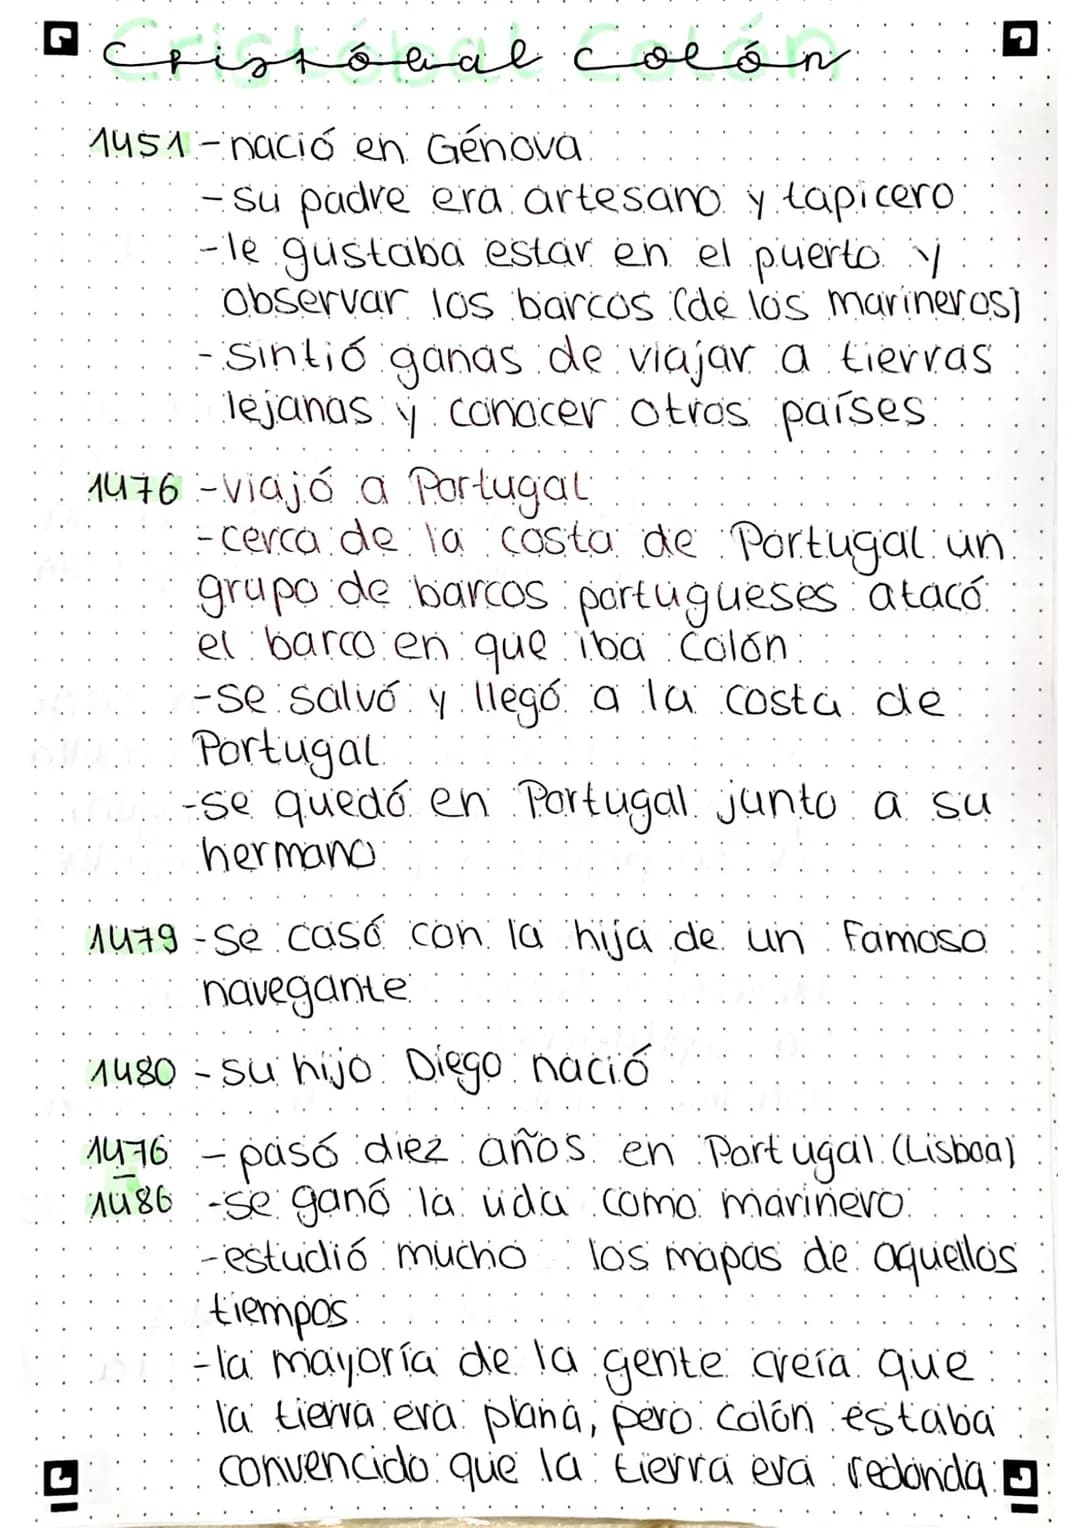 Cristóbal Colón
1451 - nació en Génova
- su padre era artesano y tapicero
- le gustaba estar en el puerto y
observar los barcos (de los marineros)
- sintió ganas de viajar a tierras
lejanas y conocer otros países
1476 - viajó a Portugal
- cerca de la costa de Portugal un
grupo de barcos portugueses atacó
el barco en que iba Colón
- se salvó y llegó a la costa de
Portugal
- se quedó en Portugal junto a su
hermano
1479 - se casó con la hija de un famoso
navegante
1480 - su hijo Diego nació
1476 - pasó diez años en Portugal (Lisboa)
1486 - se ganó la vida como marinero
- estudió mucho los mapas de aquellos
tiempos
- la mayoría de la gente creía que
la tierra era plana, pero Colón estaba
convencido que la tierra era redonda